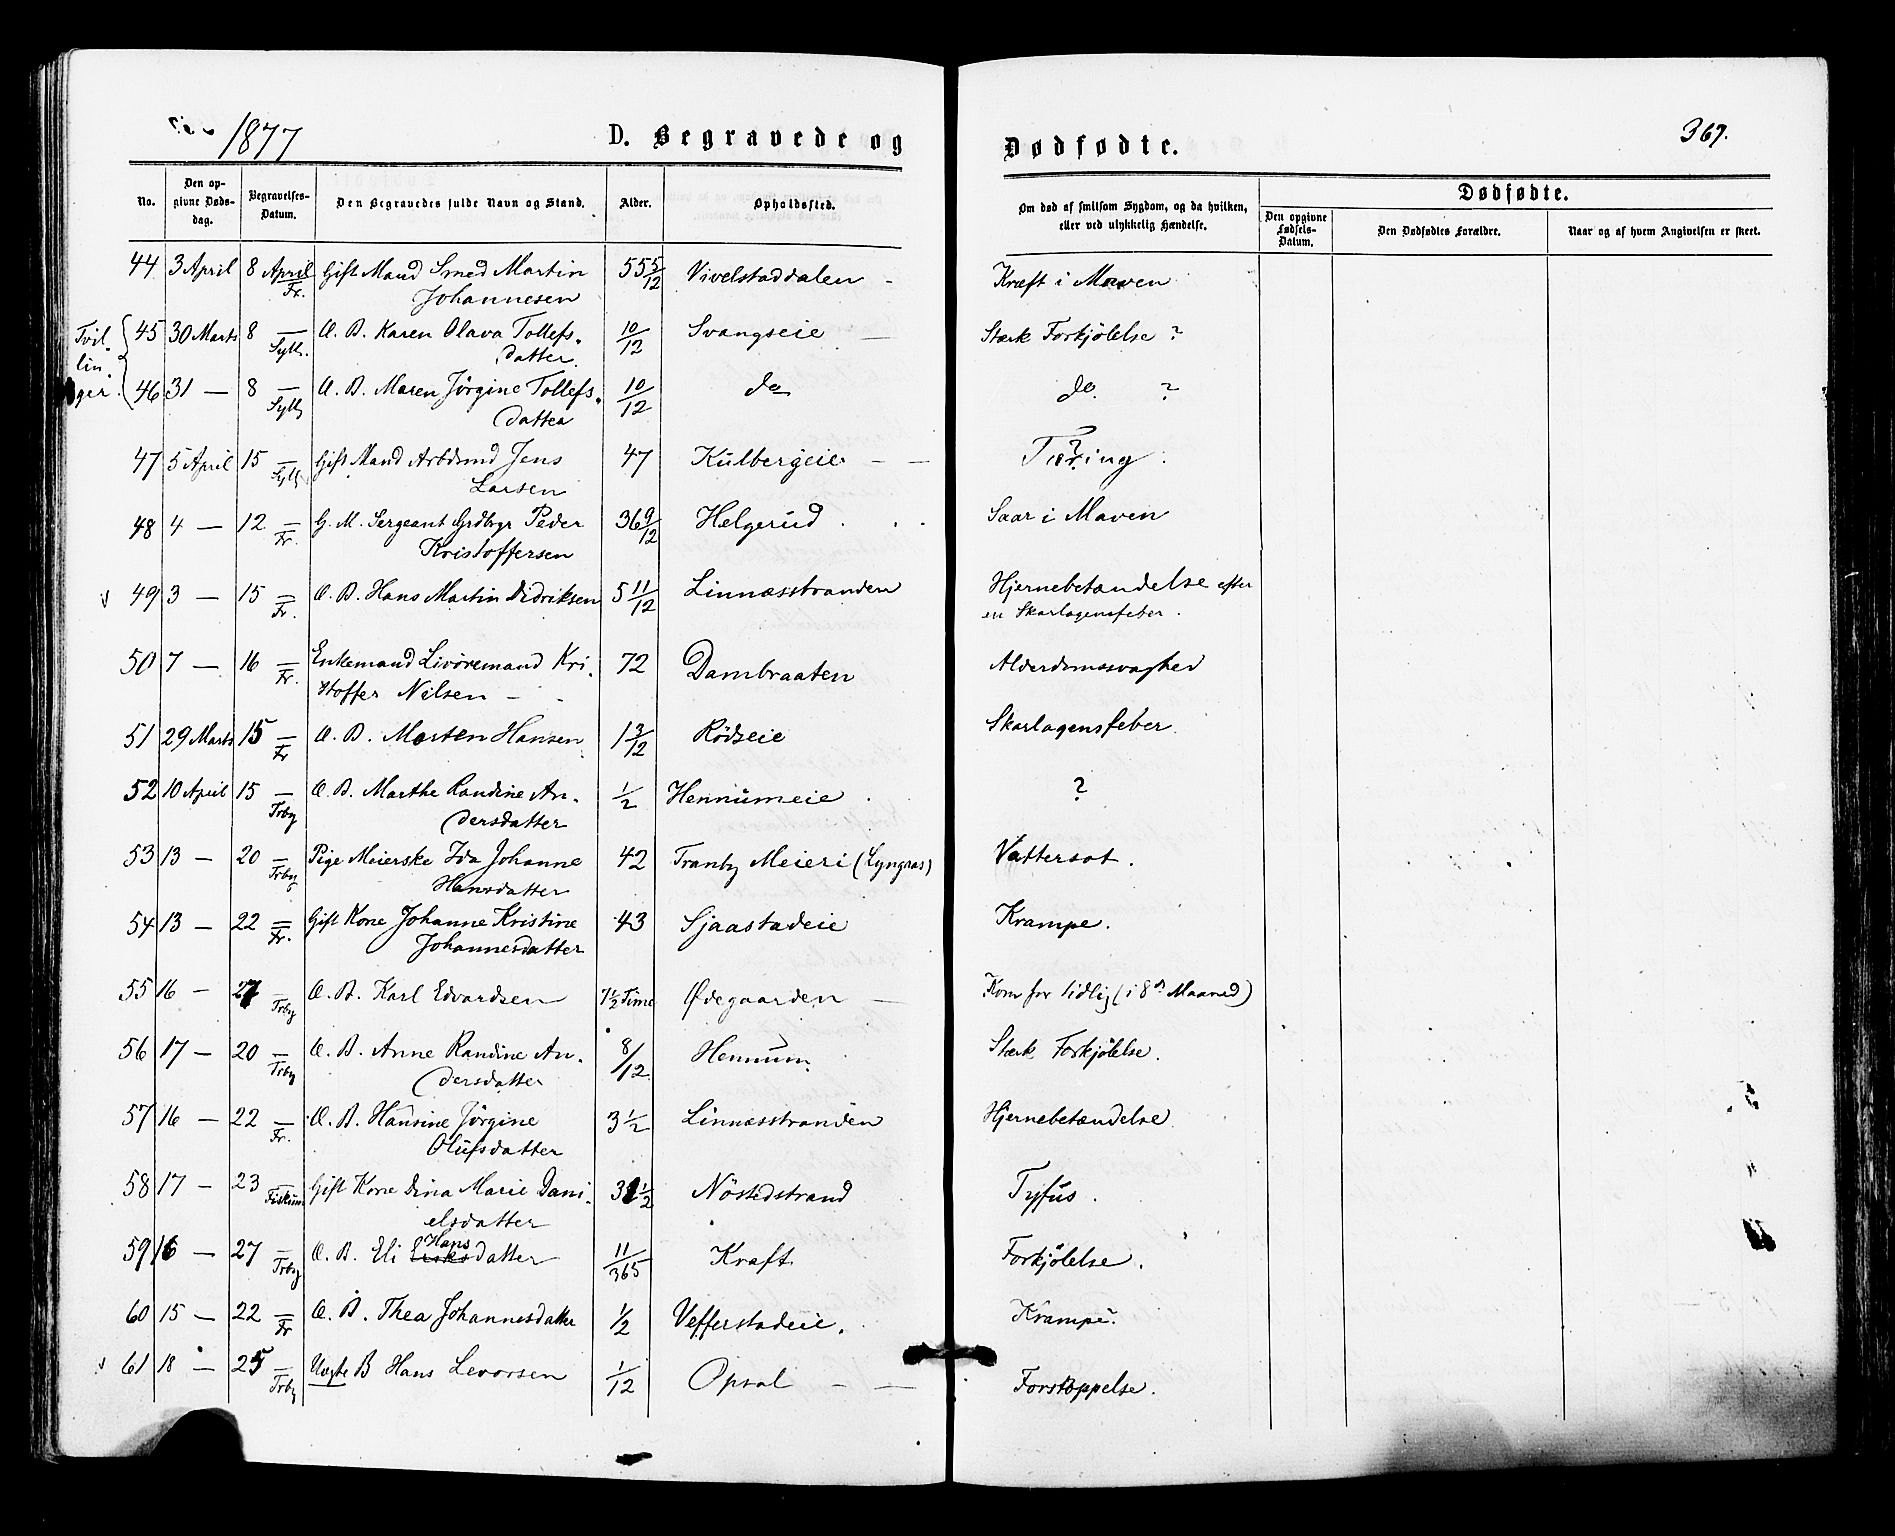 1877
D. Begravede og
Dødfødte.
367.
No.
Den op-
givne Døds-
dag.
Begravelses-
Datum.
Den Begravedes fulde Navn og Stand.
Alder.
Opholdssted.
Om død af smitsom Sygdom, og da hvilken,
eller ved ulykkelig Hændelse.
Dødfødte.
Den opgivne
Fødsels-
Datum.
Den Dødfødtes Forældre.
Naar og af hvem Angivelsen er skeet.
44 3 April 8 April Gift Mand Smed Martin 55 5/12 Vivelstaddalen - Kræft i Maven
Fr. Johannesen
Tvil- 45 30 Marts 8 — Æ. B. Karen Olava Tollefs- 10/12 Svangseie — Stærk Forkjølelse ?
lin- Sylli. datter
ger. 46 31 — 8 — Æ. B. Maren Jørgine Tollefs- 10/12 do do. ?
Sylli datter
47 5 April 15 — Gift Mand Arbdsmd Jens 47 Kulbergeie — — Tæring ?
Sylli Larsen
48 4 — 12 — G. M. Sergeant Grdbrgr Peder 36 9/12 Helgerud Saar i Maven
Fr. Kristoffersen
49 3 — 15 — Æ. B. Hans Martin Didriksen 5 11/12 Linnæsstranden Hjernebetændelse efter
Fr. en Skarlagensfeber.
50 7 — 16 — Enkemand Livøremand Kri- 72 Dambraaten Alderdomssvaghed
Fr. stoffer Nilsen —
51 29 Marts 15 — Æ. B. Morten Hansen 1 3/12 Rødseie Skarlagensfeber
Fr
52 10 April 15 — Æ. B. Marthe Randine An- 1/2 Hennumeie ?
Trby dersdatter
53 13 — 20 — Pige Meierske Ida Johanne 42 Tranby Meieri (Lyngaas) Vattersot.
Trby Hansdatter
54 13 — 22 — Gift Kone Johanne Kristine 43 Sjaastadeie Krampe.
Fr. Johannesdatter
55 16 — 27 — Æ. B. Karl Edvardsen 7 1/2 Time Ødegaarden — Kom for tidlig (i 8de Maaned)
Trby
56 17 — 20 — Æ. B. Anne Randine An- 8/12 Hennum Stærk Forkjølelse.
Trby dersdatter
57 16 — 22 — Æ. B. Hansine Jørgine 3 1/2 Linnæsstranden Hjernebetændelse
Fr. Olufsdatter
58 17 — 23 Gift Kone Dina Marie Dani- 31 1/2 Nøstedstrand Tyfus.
Fiskum elsdatter
Hans
59 16 — 27 — Æ. B. Eli Eriksdatter 11/365 Kraft Forkjølelse.
Trby
60 15 — 22 — Æ. B. Thea Johannesdatter 1/2 Vefferstadeie. Krampe.
Fr
61 18 — 25 — Uægte B Hans Levorsen 1/12 Opsal — — Forstoppelse.
Trby